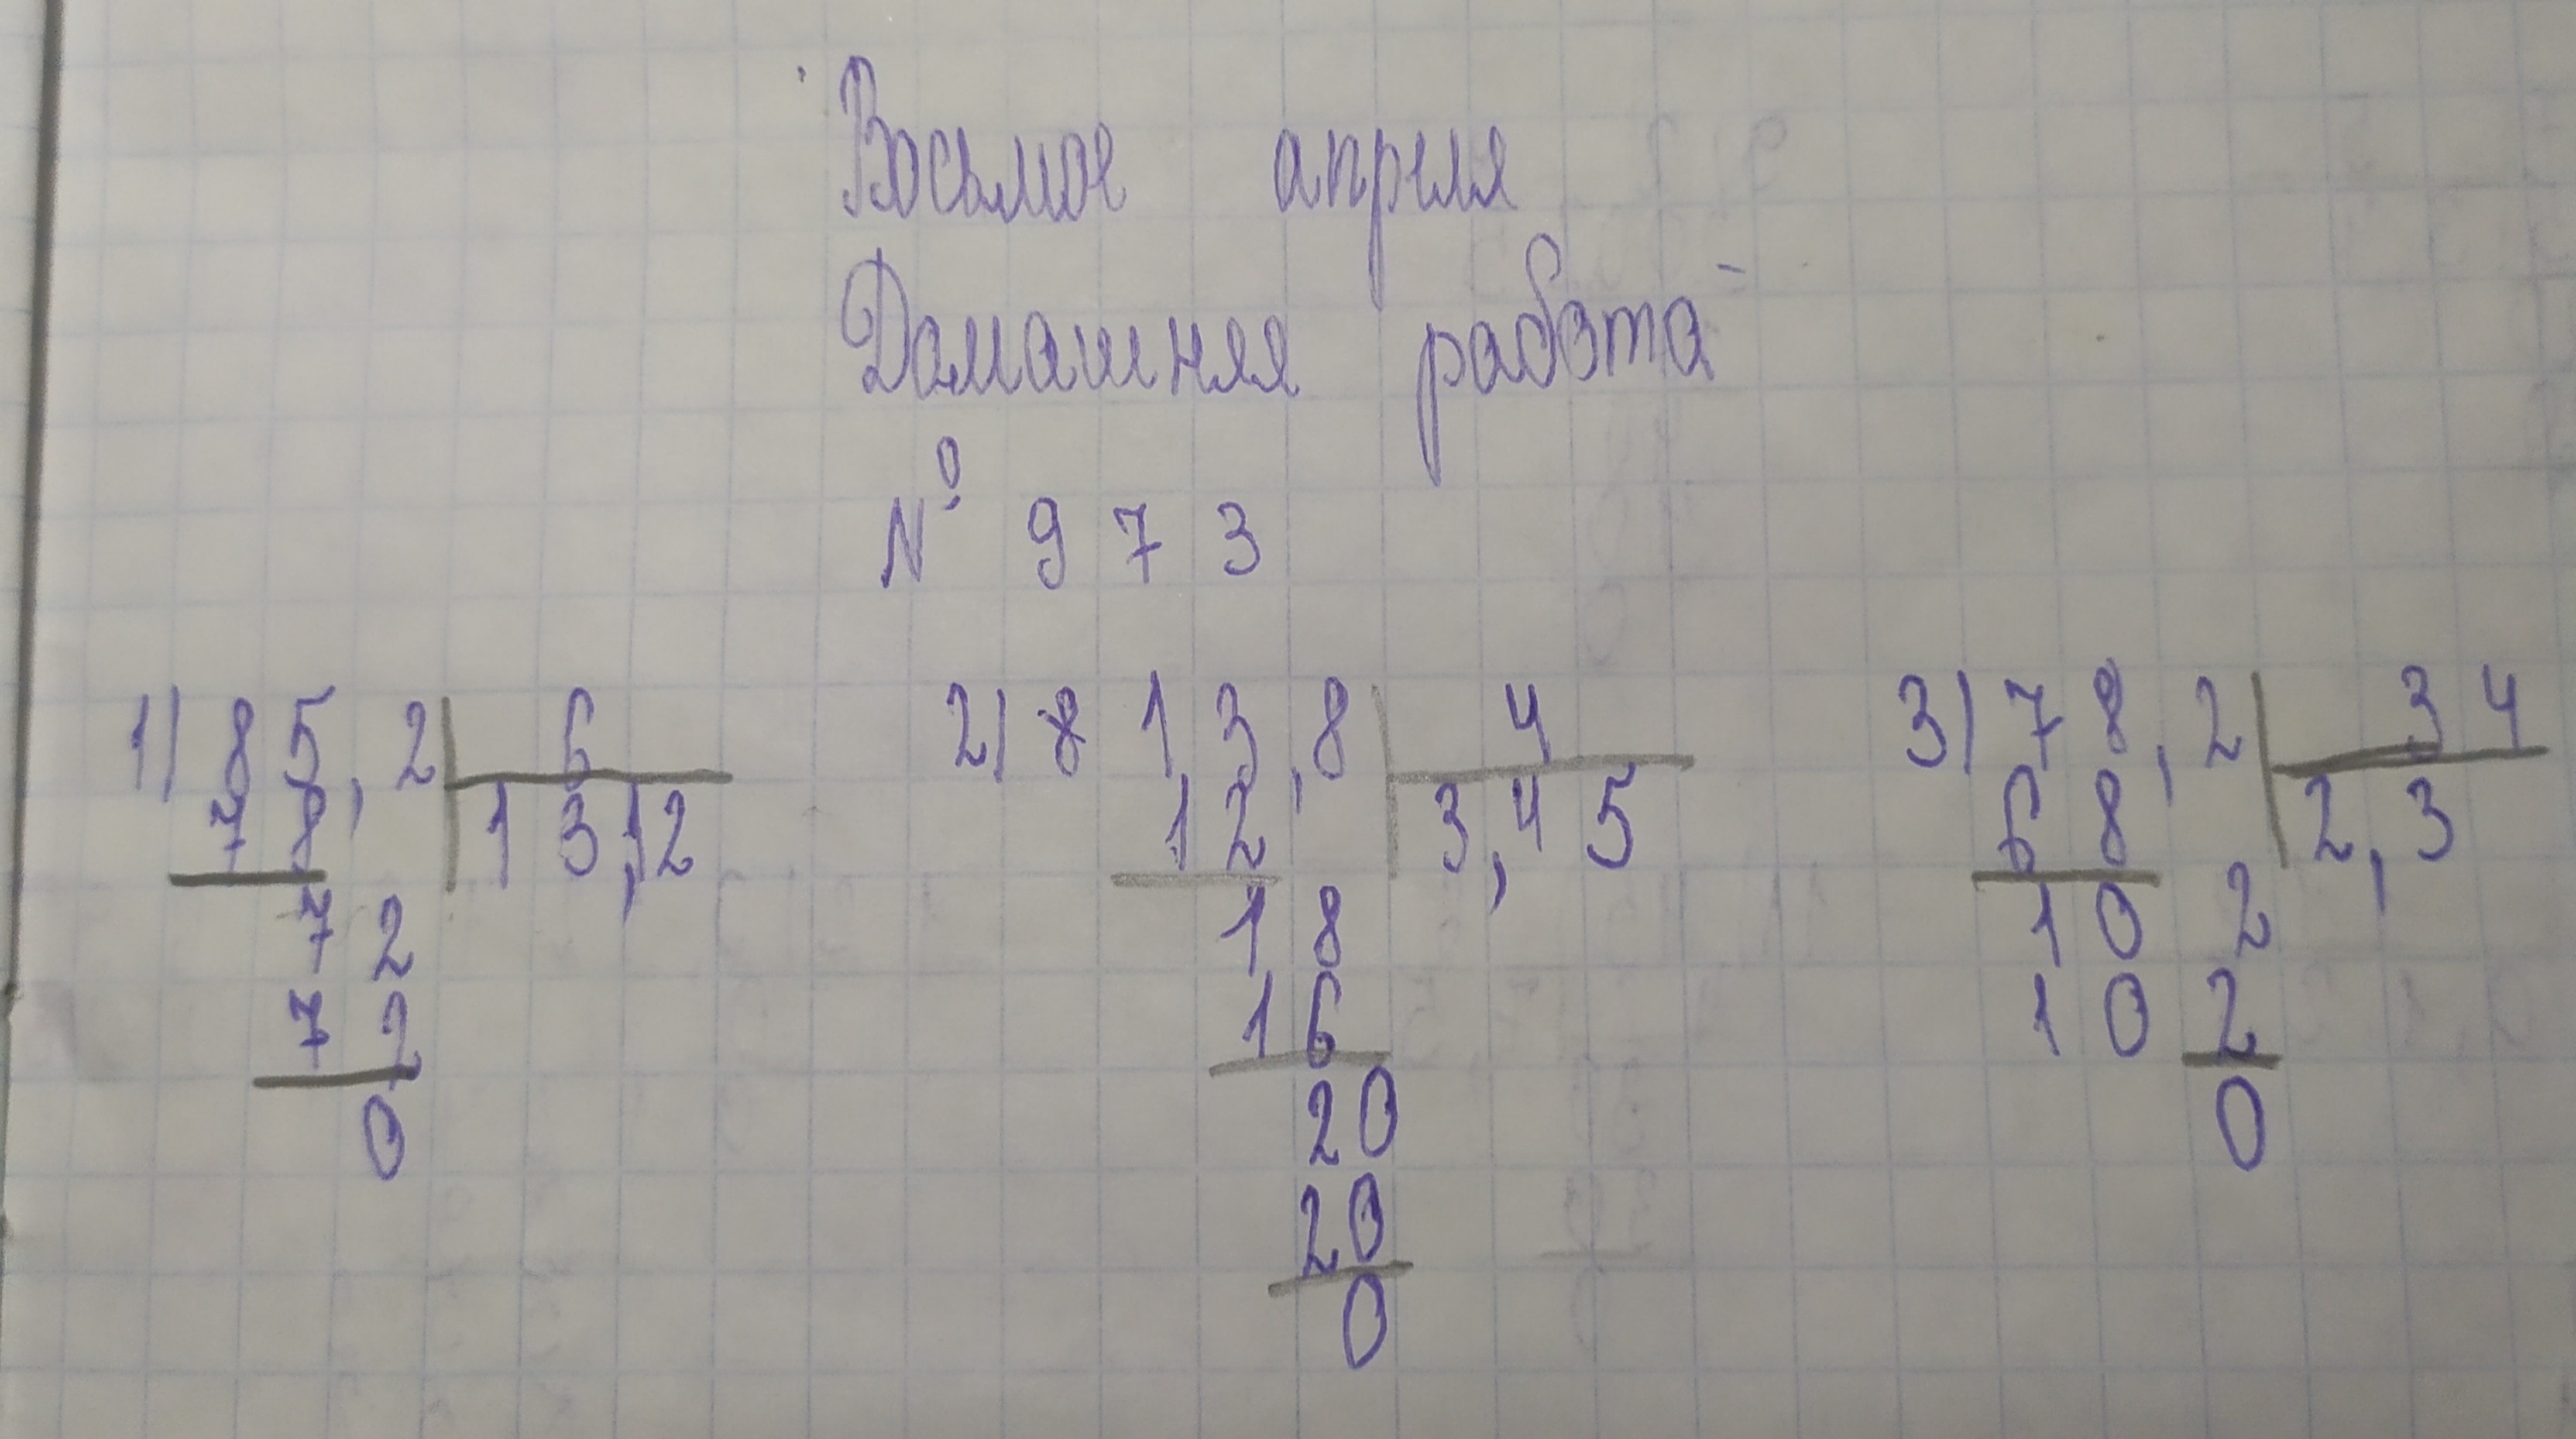 Восьмое апреля
Домашняя работа
№ 973
1) 85,2 6
78 13,12
72
72
0
2) 8 13,8 4
12 3,45
18
16
20
20
0
3) 78,2 34
68 2,3
102
102
0